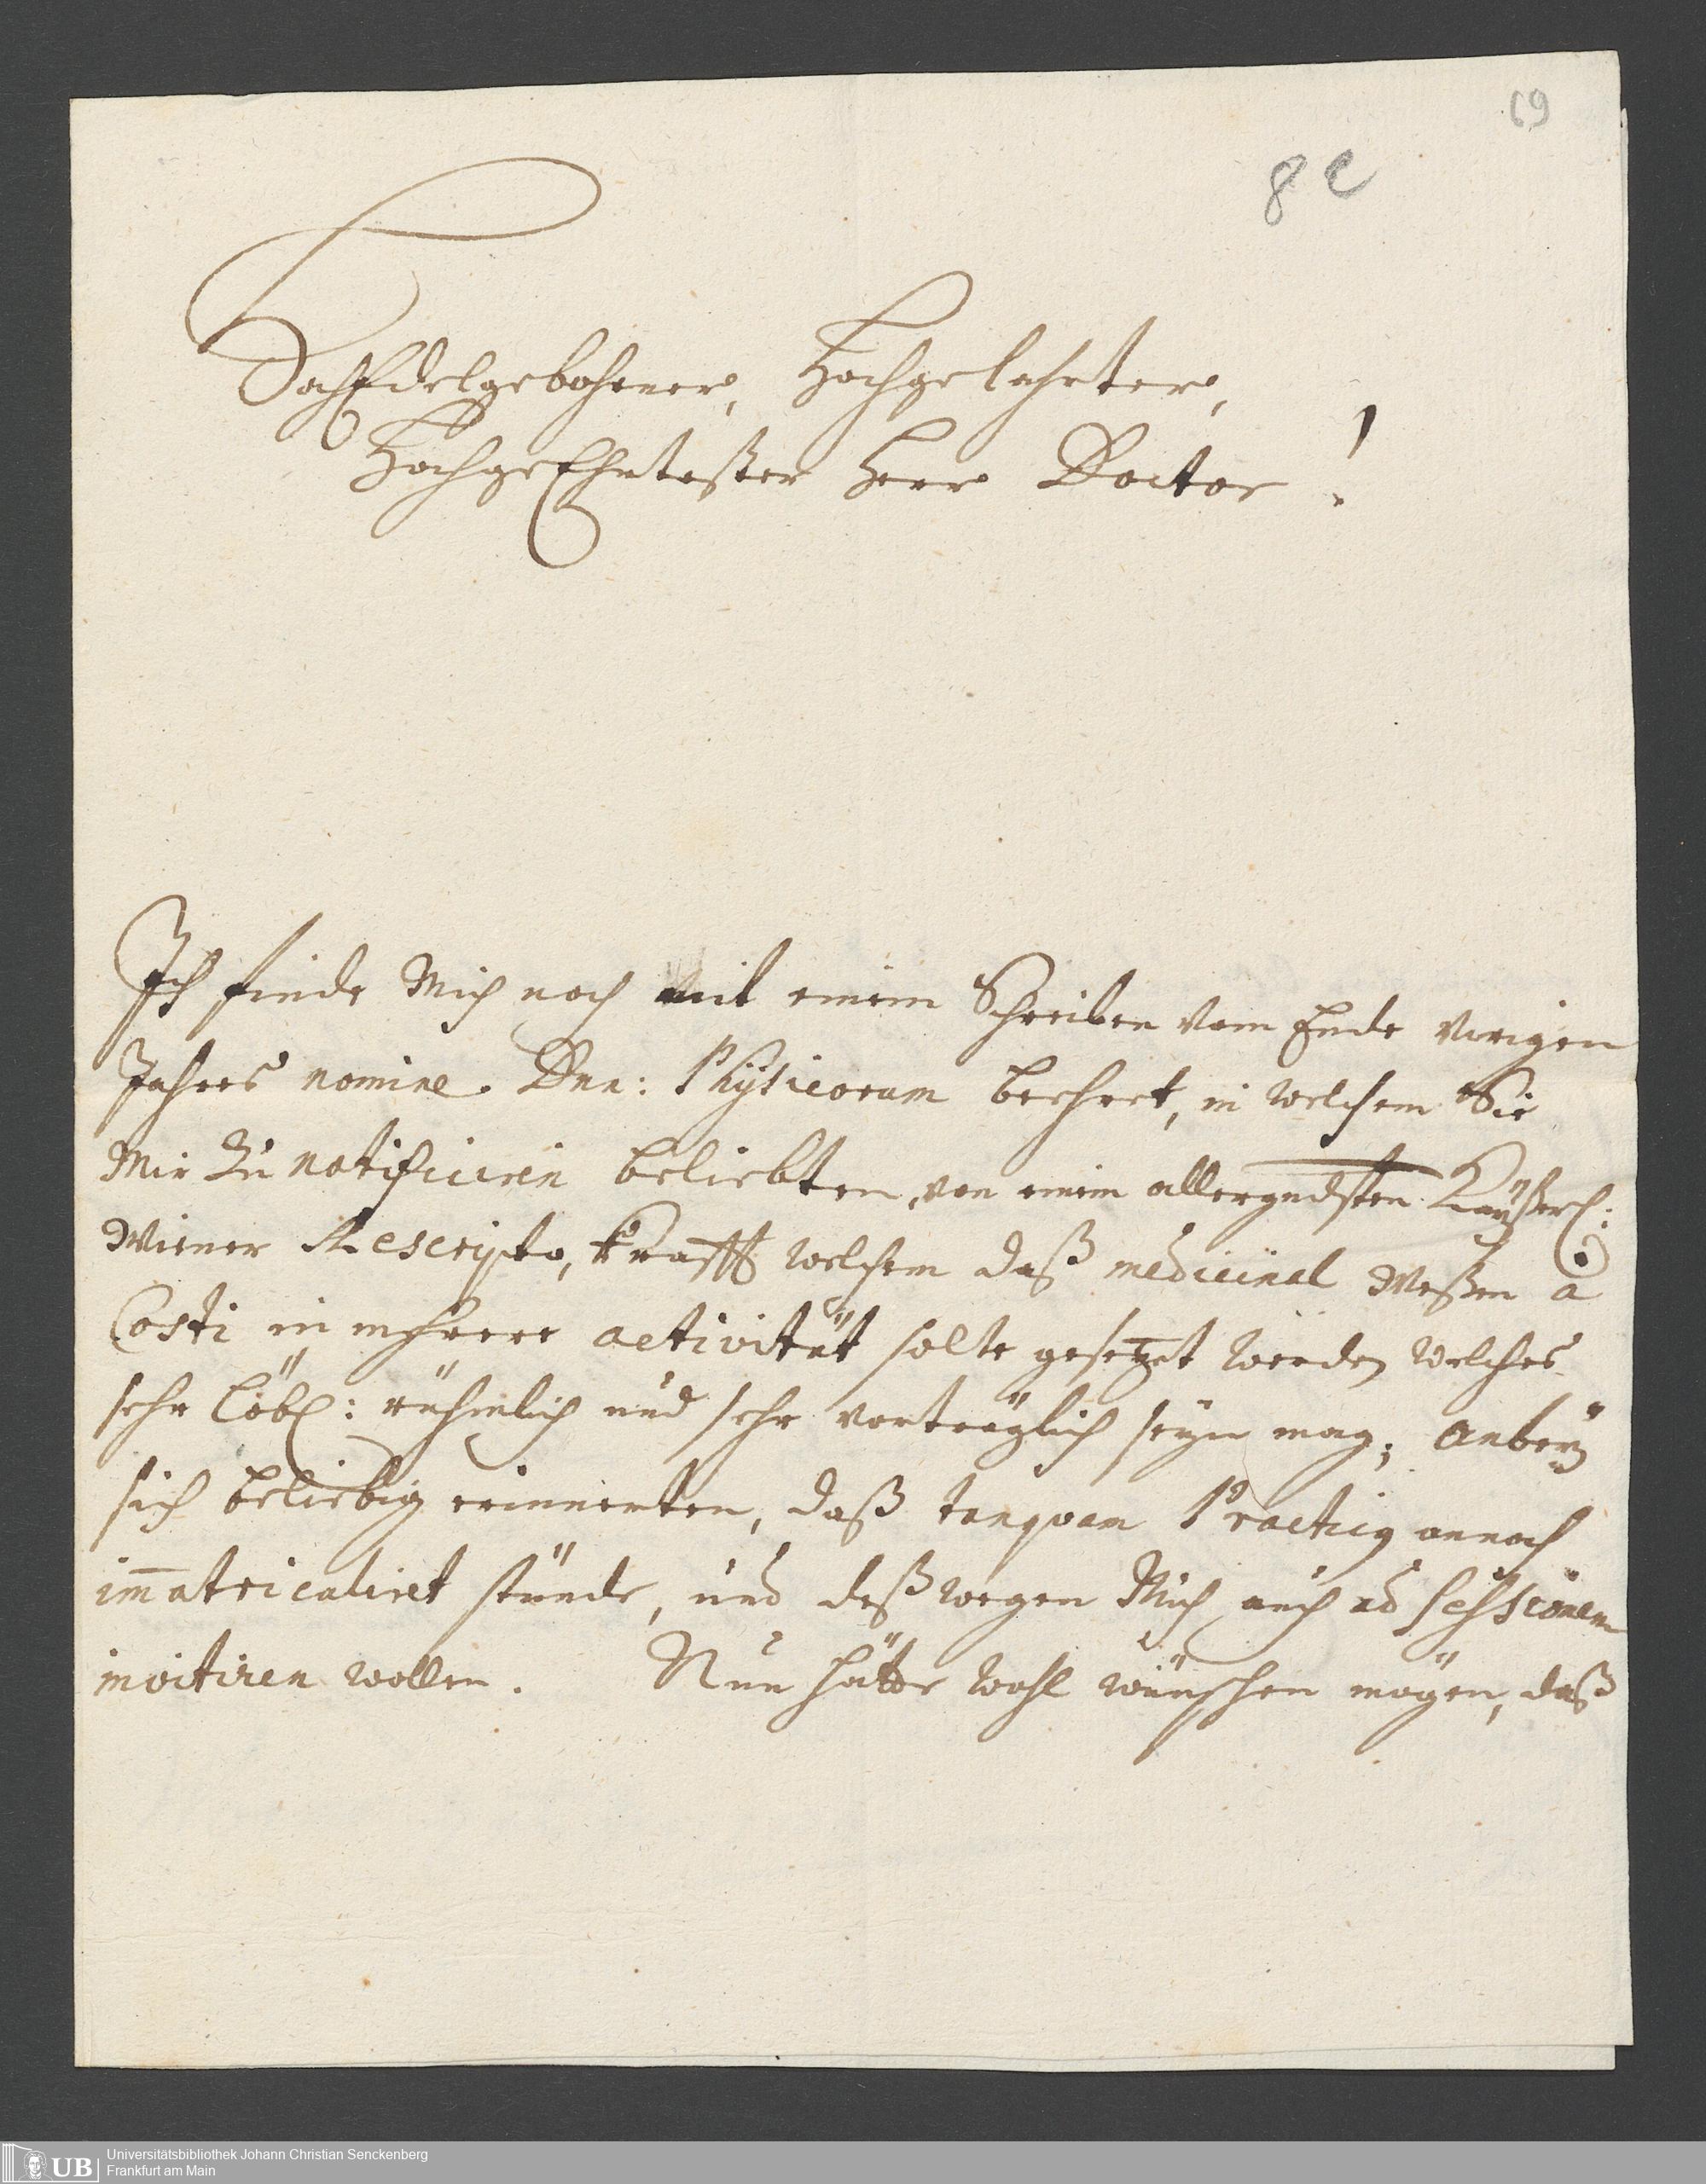 69
8 e
HochEdelgebohrner, Hochgelahrter,
HochgeEhrtester Herr Doctor!
Ich finde Mich noch mit einem Schreiben vom Ende vorigen
Jahres nomine Dnn: Physicorum beehret, in welchem Sie
Mir Zu notificiren beliebten, von einem allergndsten Kayßerl:
Wiener Rescripto, krafft welchem daß medicinal Weßen à
Costi in mehrere activität solte gesetzet werden welches
sehr löbl: rühmlich und sehr vorträglich seyn mag; Anbey
sich beliebig erinnerten, daß tanquam Practicg annoch
im̅atriculiret stünde, und deßwegen Mich auch ad Sessionem
invitiren wollen. Nun hätte wohl wünschen mögen, daß
UB
Universitätsbibliothek Johann Christian Senckenberg
Frankfurt am Main